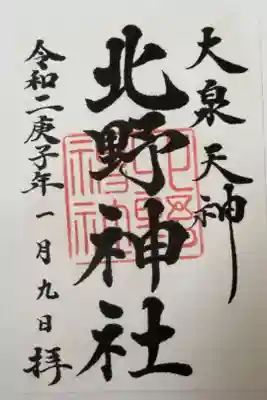 大泉天神
北野神社
令和二庚子年一月九日拝
北野
神社